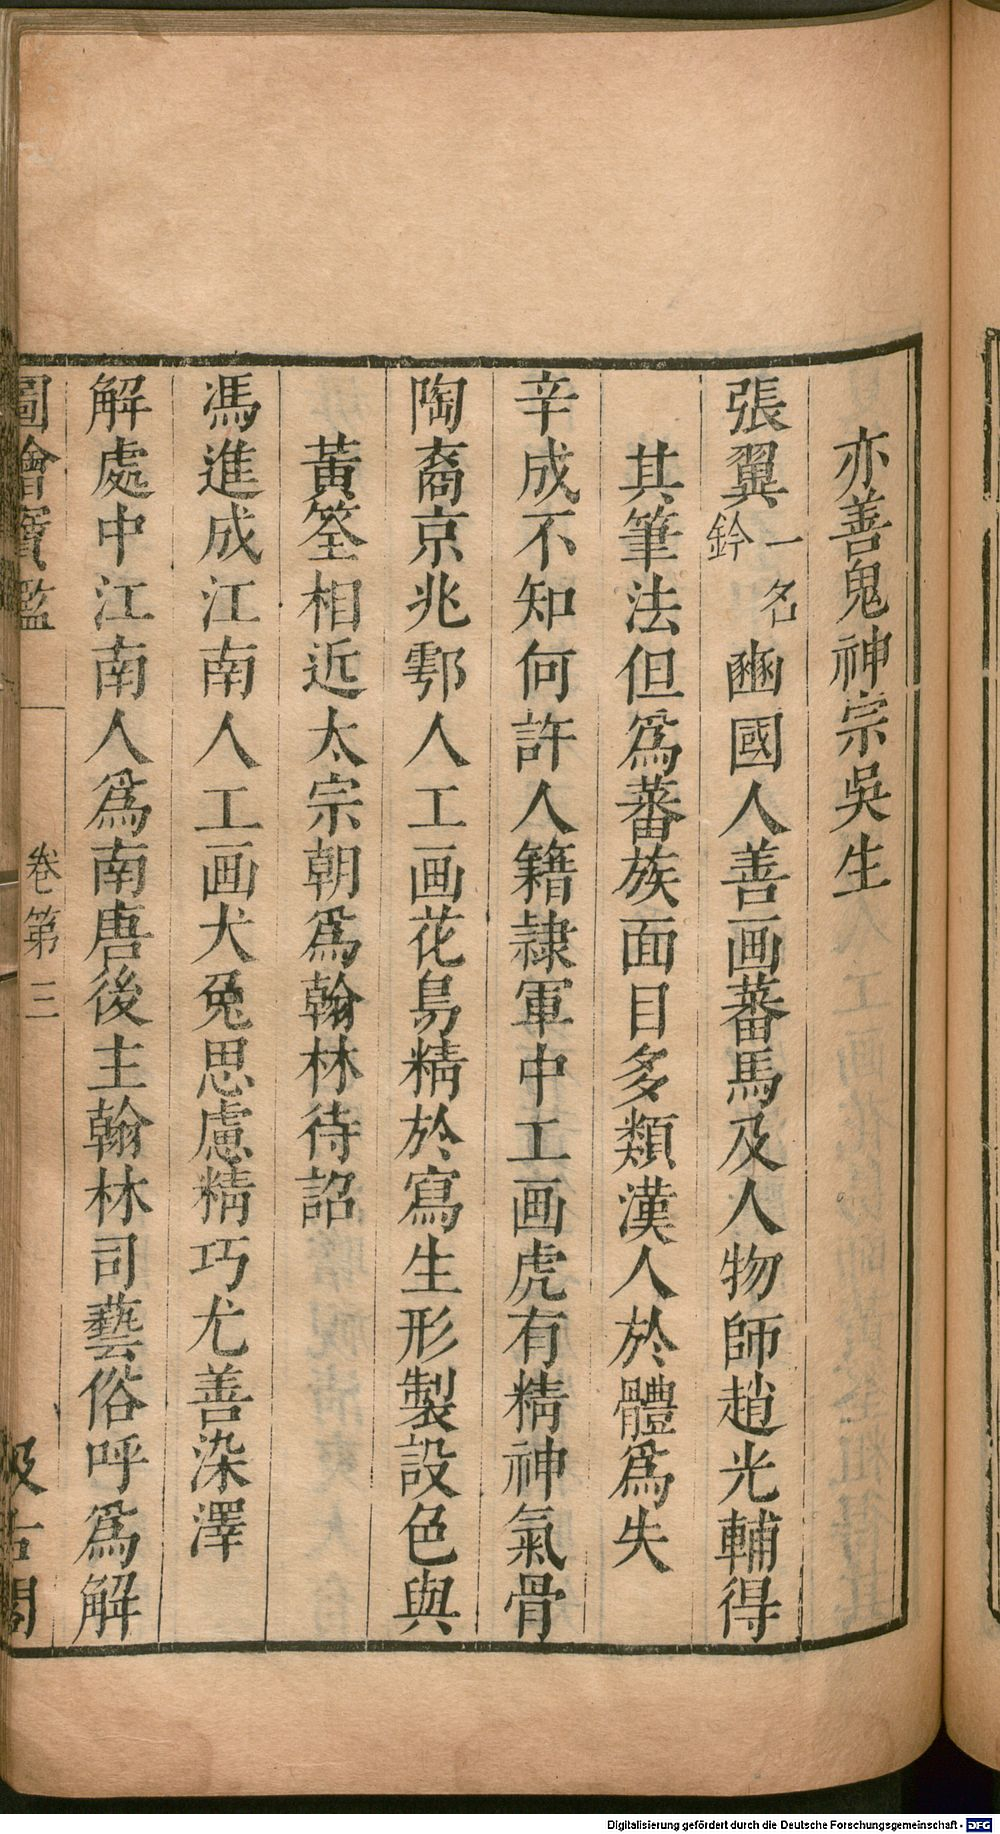 亦善鬼神宗吳生
張翼一名鈐豳國人善画蕃馬及人物師趙光輔得
其筆法但爲蕃族面目多類漢人於體爲失
辛成不知何許人籍隷軍中工画虎有精神氣骨
陶裔京兆鄠人工画花鳥精於寫生形製設色與
黃筌相近太宗朝爲翰林待詔
馮進成江南人工画犬兔思慮精巧尤善染澤
解處中江南人爲南唐後主翰林司藝俗呼爲解
圖繪寶鑑 卷第三 汲古閣
Digitalisierung gefördert durch die Deutsche Forschungsgemeinschaft - DFG